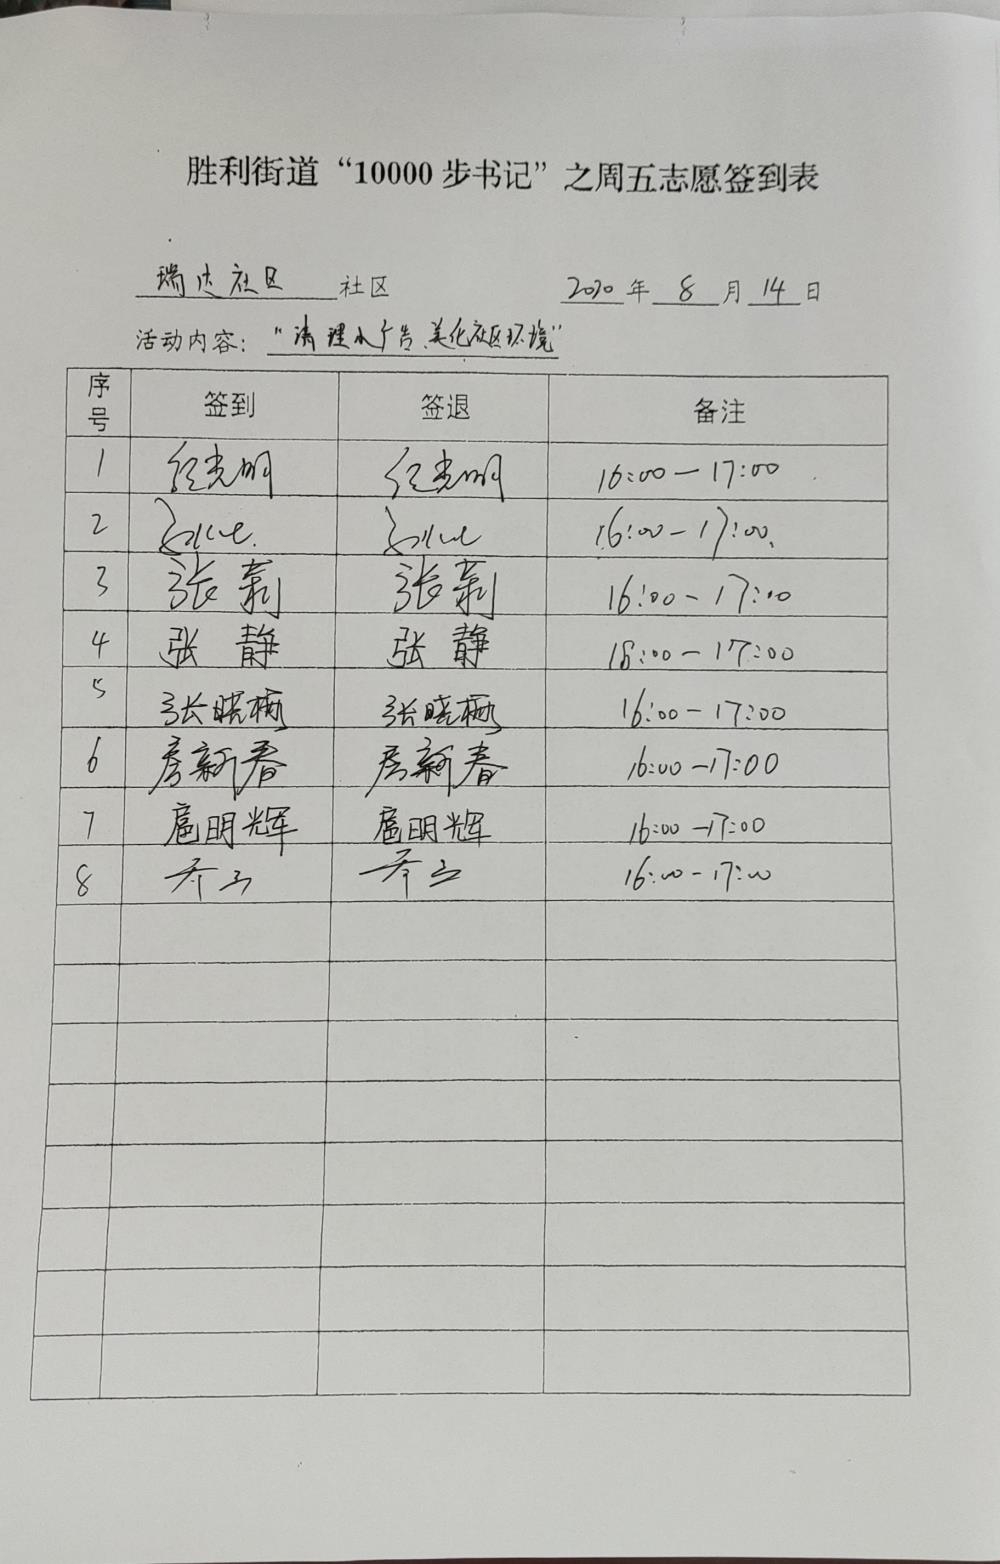 胜利街道“10000步书记”之周五志愿签到表
瑞达社区 社区 2020年 8 月 14 日
活动内容：“清理小广告、美化社区环境”
序号 签到 签退 备注
1 光明 光明 16:00-17:00
2 16:00-17:00
3 张莉 张莉 16:00-17:00
4 张静 张静 18:00-17:00
5 张晓梅 张晓梅 16:00-17:00
6 房新春 房新春 16:00-17:00
7 扈明辉 扈明辉 16:00-17:00
8 乔 乔 16:00-17:00